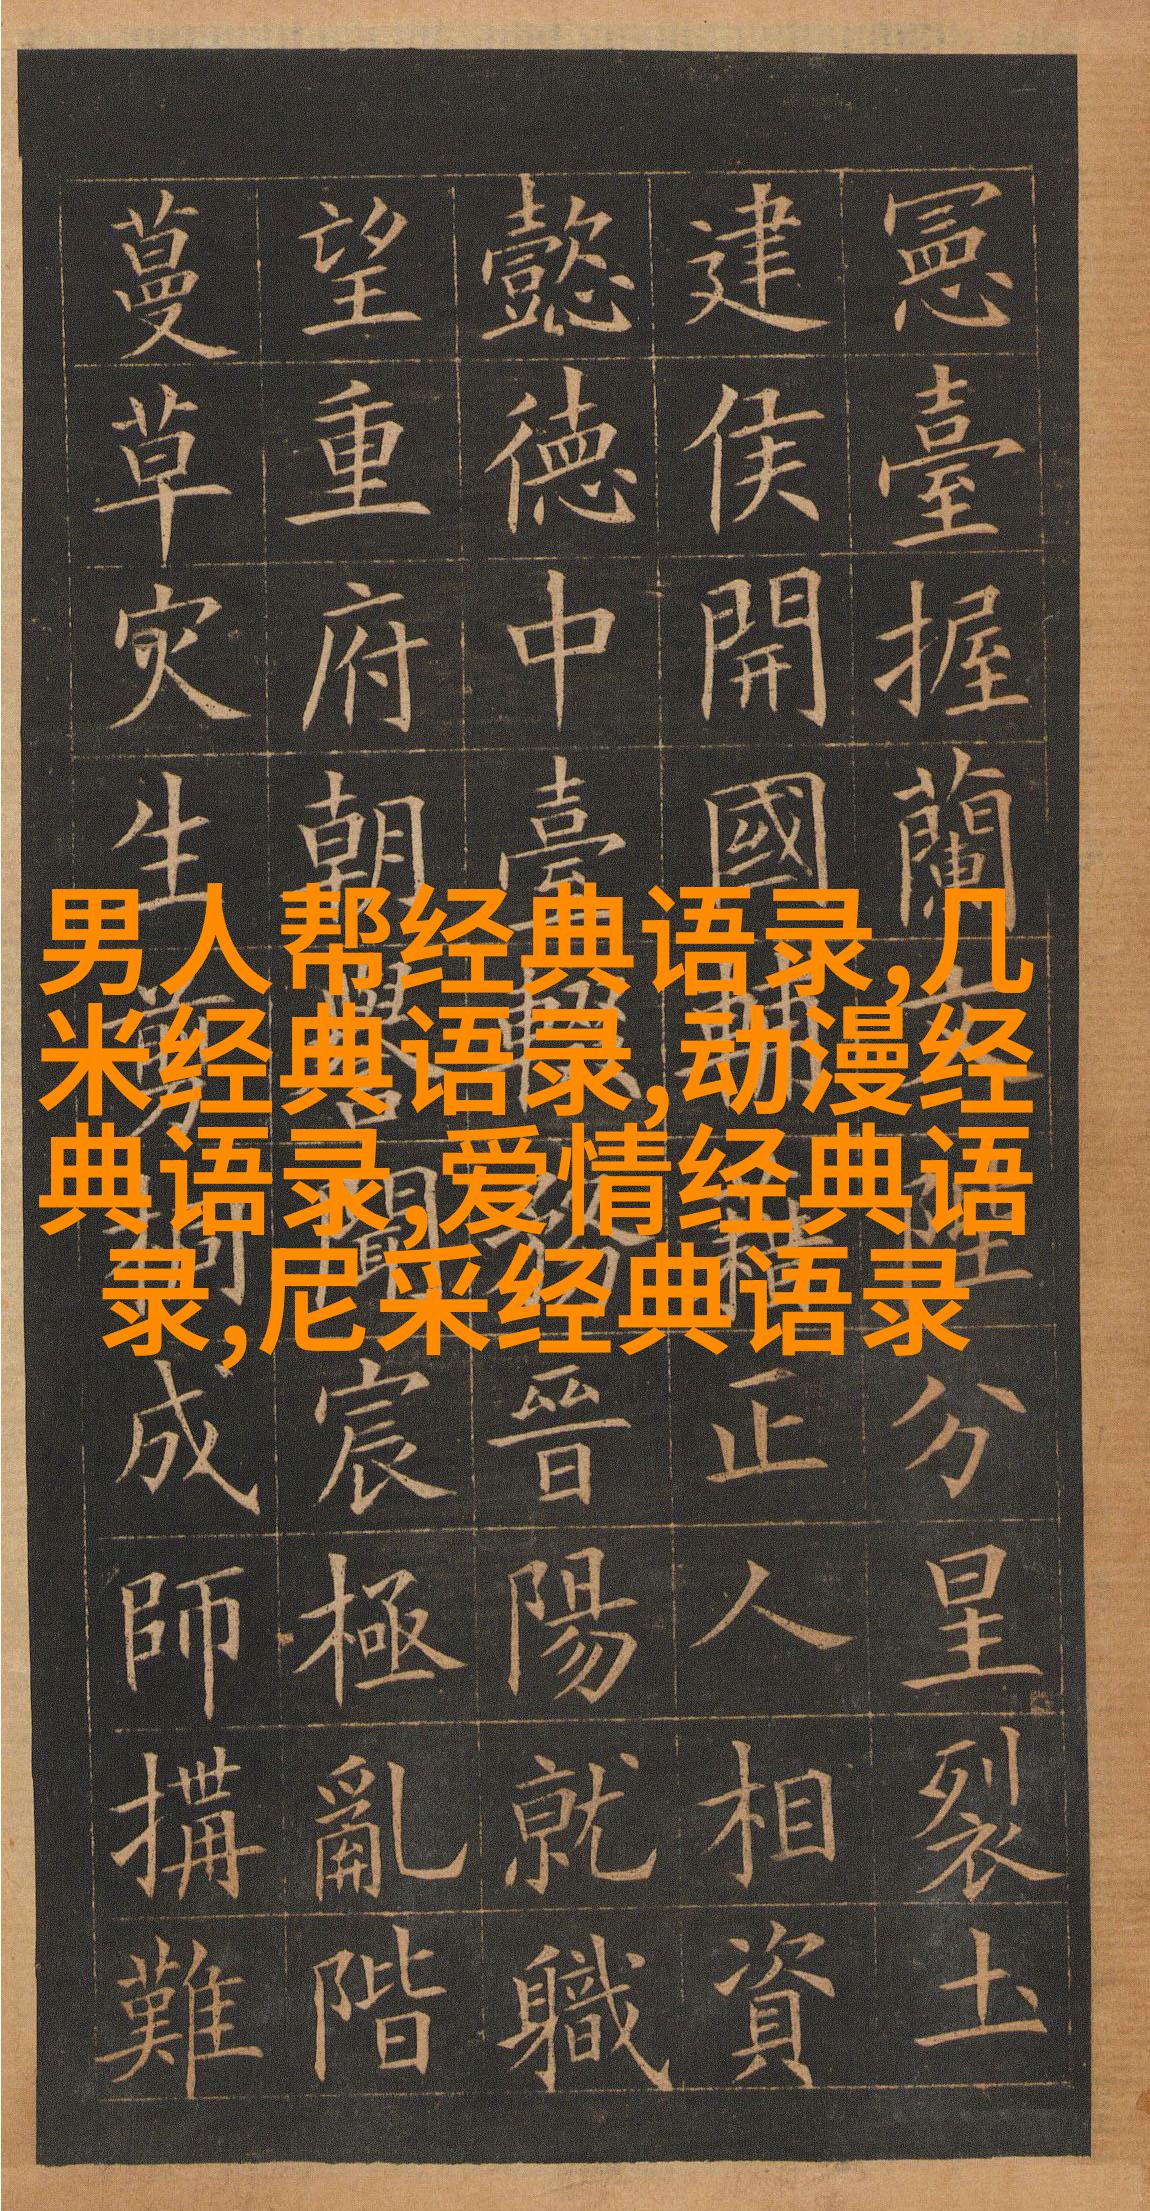 憲臺握蘭文陛分星裂土
建侯開國輔藉正人相資
懿德中臺務晉陽就職
望重府朝譽聞宸極亂階
蔓草灾生剪桐成師搆難
男人帮经典语录,几
米经典语录,动漫经
典语录,爱情经典语
录,尼采经典语录